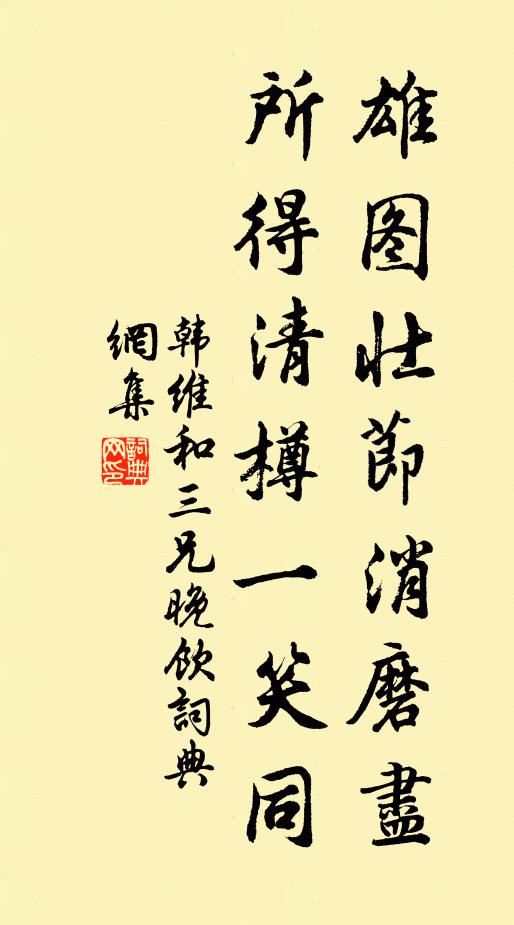 雄图壮節消磨盡
所得清樽一笑同
韩維和三兄晚飲詞典
網集
詞典網印